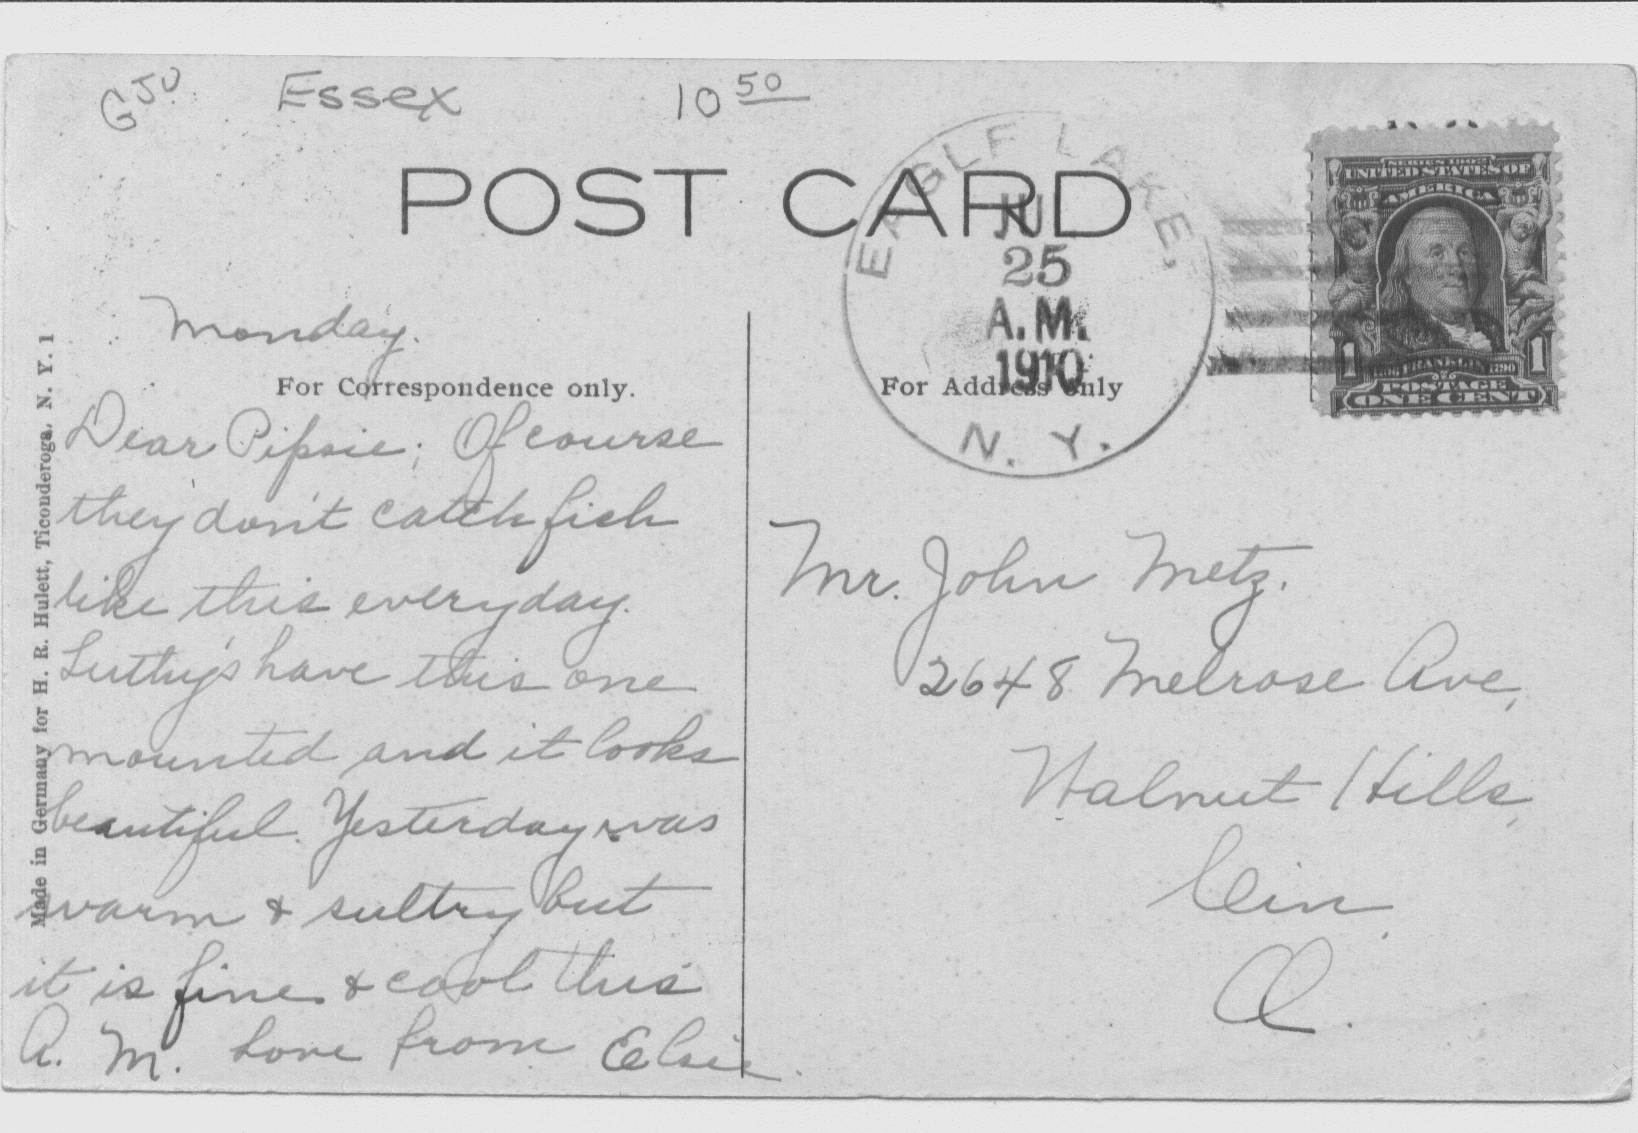 GJU Essex 10 50
POST CARD
EAGLE LAKE,
JU
25
A.M.
1910
N. Y.
SERIES 1902
UNITED STATES OF
AMERICA
1 FRANKLIN 1790 1
POSTAGE
ONE CENT
Made in Germany for H. R. Hulett, Ticonderoga, N. Y. 1
Monday.
For Correspondence only.
Dear Pipsie; Of course
they don't catch fish
like this everyday.
Luthy's have this one
mounted and it looks
beautiful. Yesterday was
warm & sultry but
it is fine & cool this
A. M. Love from Elsie.
For Address Only
Mr. John Metz.
2648 Melrose Ave,
Walnut Hills,
Cin,
O.